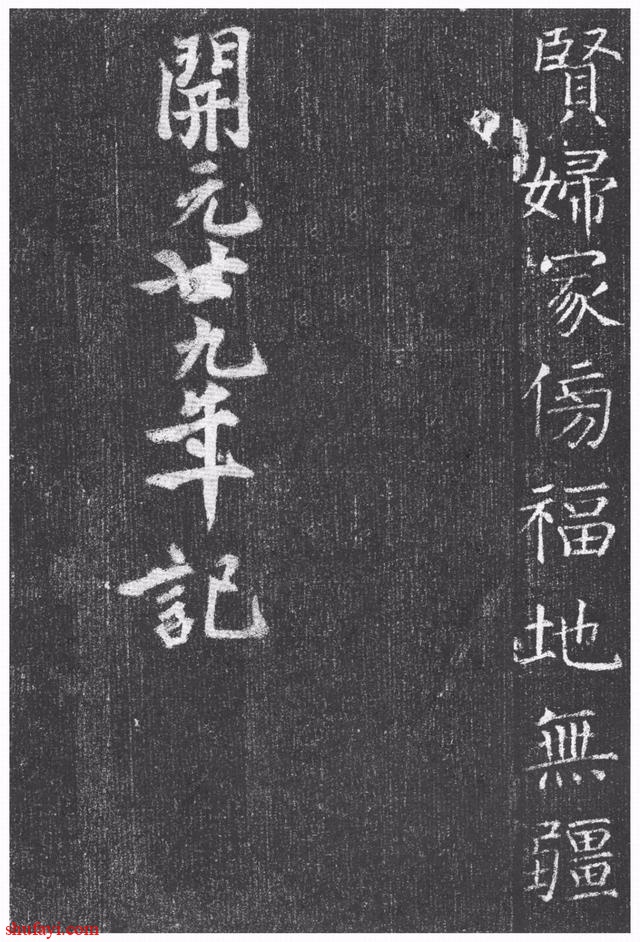 賢婦家傍福地無疆
開元廿九年記
shufayi.com